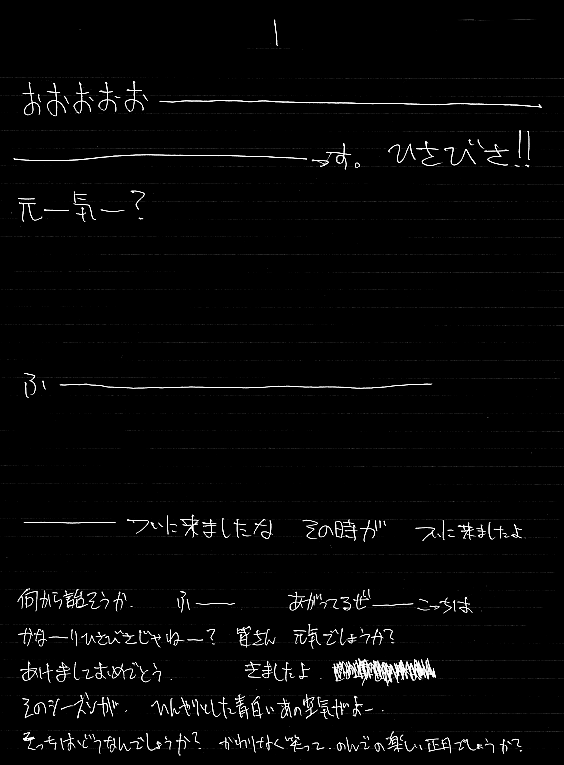 1
おおおおお――――――――
――――――――っす。 ひさびさ!!
元―気―?
ふぃ――――――――
―――― ついに来ましたな その時が ついに来ましたよ
何から話そうか. ふ―― あがってるぜ――こっちは
かな――りひさびさじゃね―? 皆さん 元気でしょうか?
あけましておめでとう. きましたよ.
そのシーズンが. ひんやりとした青白いあの空気がよ―.
そっちはどうなんでしょうか? かわりなく笑って、のんでの楽しい正月でしょうか?